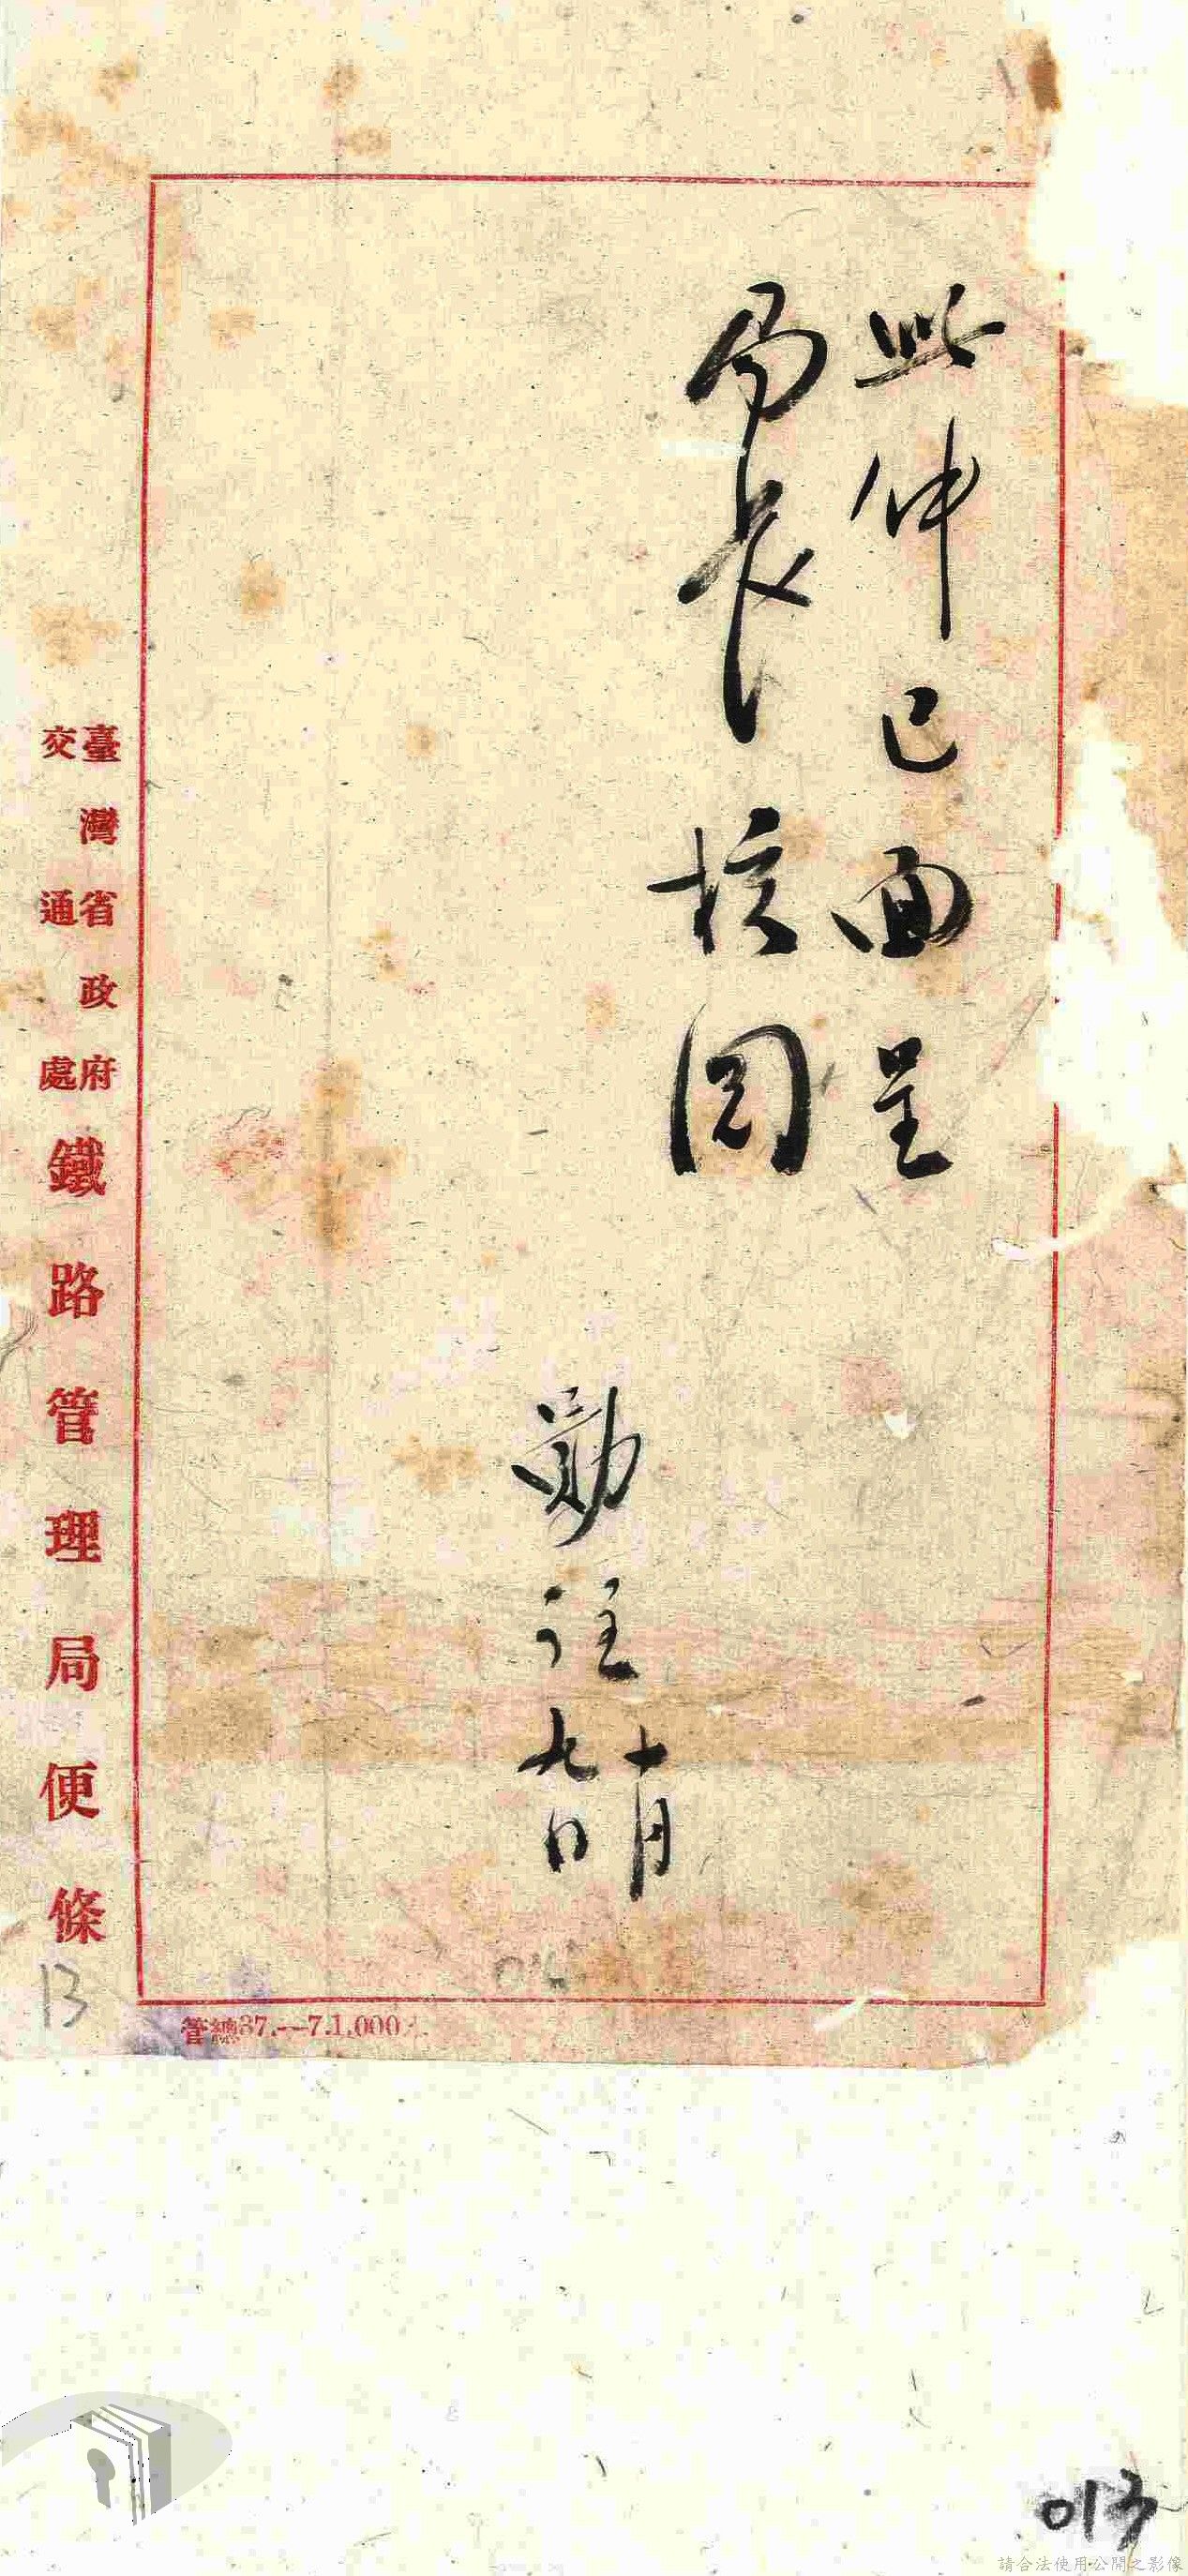 此件已面呈
局長核閱
勛註
十月
九日
臺灣省政府
交通處
鐵路管理局便條
管總37.—7.1.000
13
013
請合法使用公開之影像